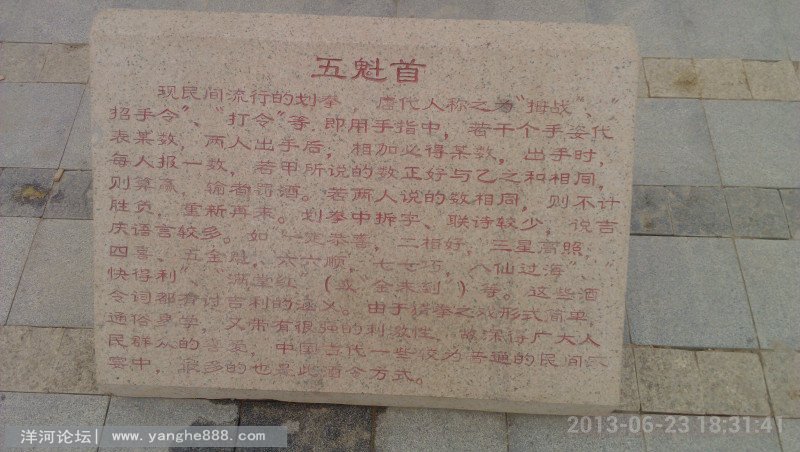 五魁首
现民间流行的划拳 唐代人称之为“拇战”、“
招手令”、“打令”等 即用手指中，若干个手姿代
表某数，两人出手后，相加必得某数，出手时，
每人报一数，若甲所说的数正好与乙之和相同，
则算赢，输者罚酒。若两人说的数相同，则不计
胜负，重新再来。划拳中拆字、联诗较少，说吉
庆语言较多。如“一定恭喜，二相好，三星高照，
四喜、五金魁，六六顺，七七巧，八仙过海
快得利”、“满堂红（或“全来到）等。这些酒
令词都有讨吉利的涵义。由于猜拳之戏形式简单，
通俗易学，又带有很强的刺激性，故深得广大人
民群众的喜爱，中国古代一些较为普通的民间
宴中，最多的也是此酒令方式。
2013-06-23 18:31:41
洋河论坛| www.yanghe888.com